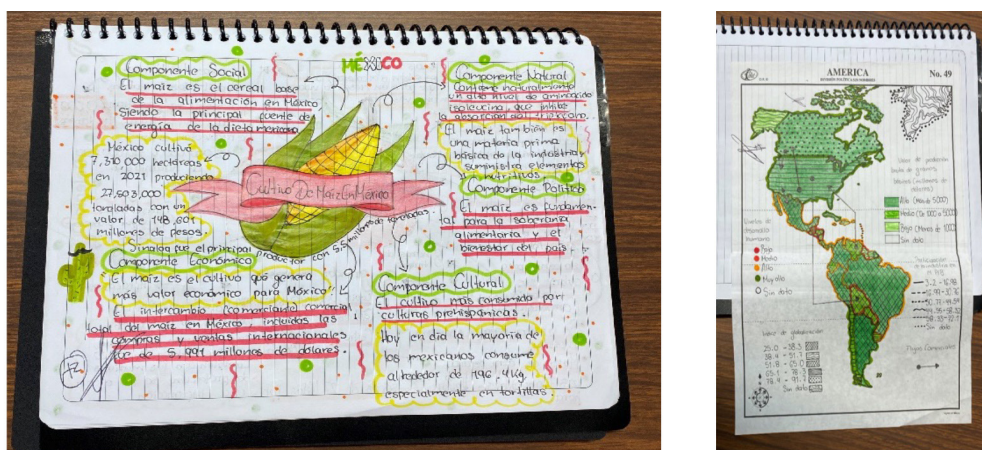 MÉXICO
Componente Social
El maíz es el cereal base
de la alimentación en México
Siendo la principal fuente de
energía de la dieta mexicana
México cultivó
7,310 000 hectáreas
en 2021 produciendo
27,503,000
toneladas con un
valor de 148,601
millones de pesos.
Sinaloa fue el principal
productor con 5,5 millones de toneladas
Componente Económico
El maíz es el cultivo que genera
más valor económico para México
El intercambio (comerciante) comercial
total del maíz en México, incluidas las
compras y ventas internacionales
fue de 5,991 millones de dólares.
Cultivo De Maíz En México
Componente Natural
Contiene naturalmente
un alto nivel de aminoácido
isoleucina, que inhibe
la absorción del
El maíz también es
una materia prima
básica de la industria
suministra elementos
nutritivos.
Componente Político
El maíz es fundamen-
tal para la soberanía
alimentaria y el
bienestar del país.
Componente Cultural
El cultivo más consumido por
culturas prehispánicas.
Hoy en día la mayoría de
los mexicanos consume
alrededor de 196,4 Kg,
especialmente en tortillas.
AMERICA
DIVISIÓN POLÍTICA SIN NOMBRES
No. 49
Valor de producción
Alto (Mas de 5000)
Medio (De 1000 a 5000)
Bajo (Menos de 1000)
Sin dato
desarrollo
humano
Bajo
Medio
Alto
Muy alto
Sin dato
Índice de globalización
25.0 - 38.3
38.4 - 51.7
51.8 - 65.0
65.1 - 78.3
78.4 - 91.7
Sin dato
Sin dato
Flujos Comerciales